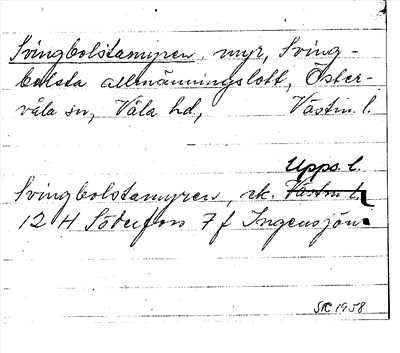 Svingbolstamyren, myr, Sving-
bolsta allmänningslott, Öster-
våla sn, Våla hd, Västm. l.
Upps. l.
Svingbolstamyren, ek. Västm. l.
12 H Söderfors 7 f Ingensjön
SR 1958